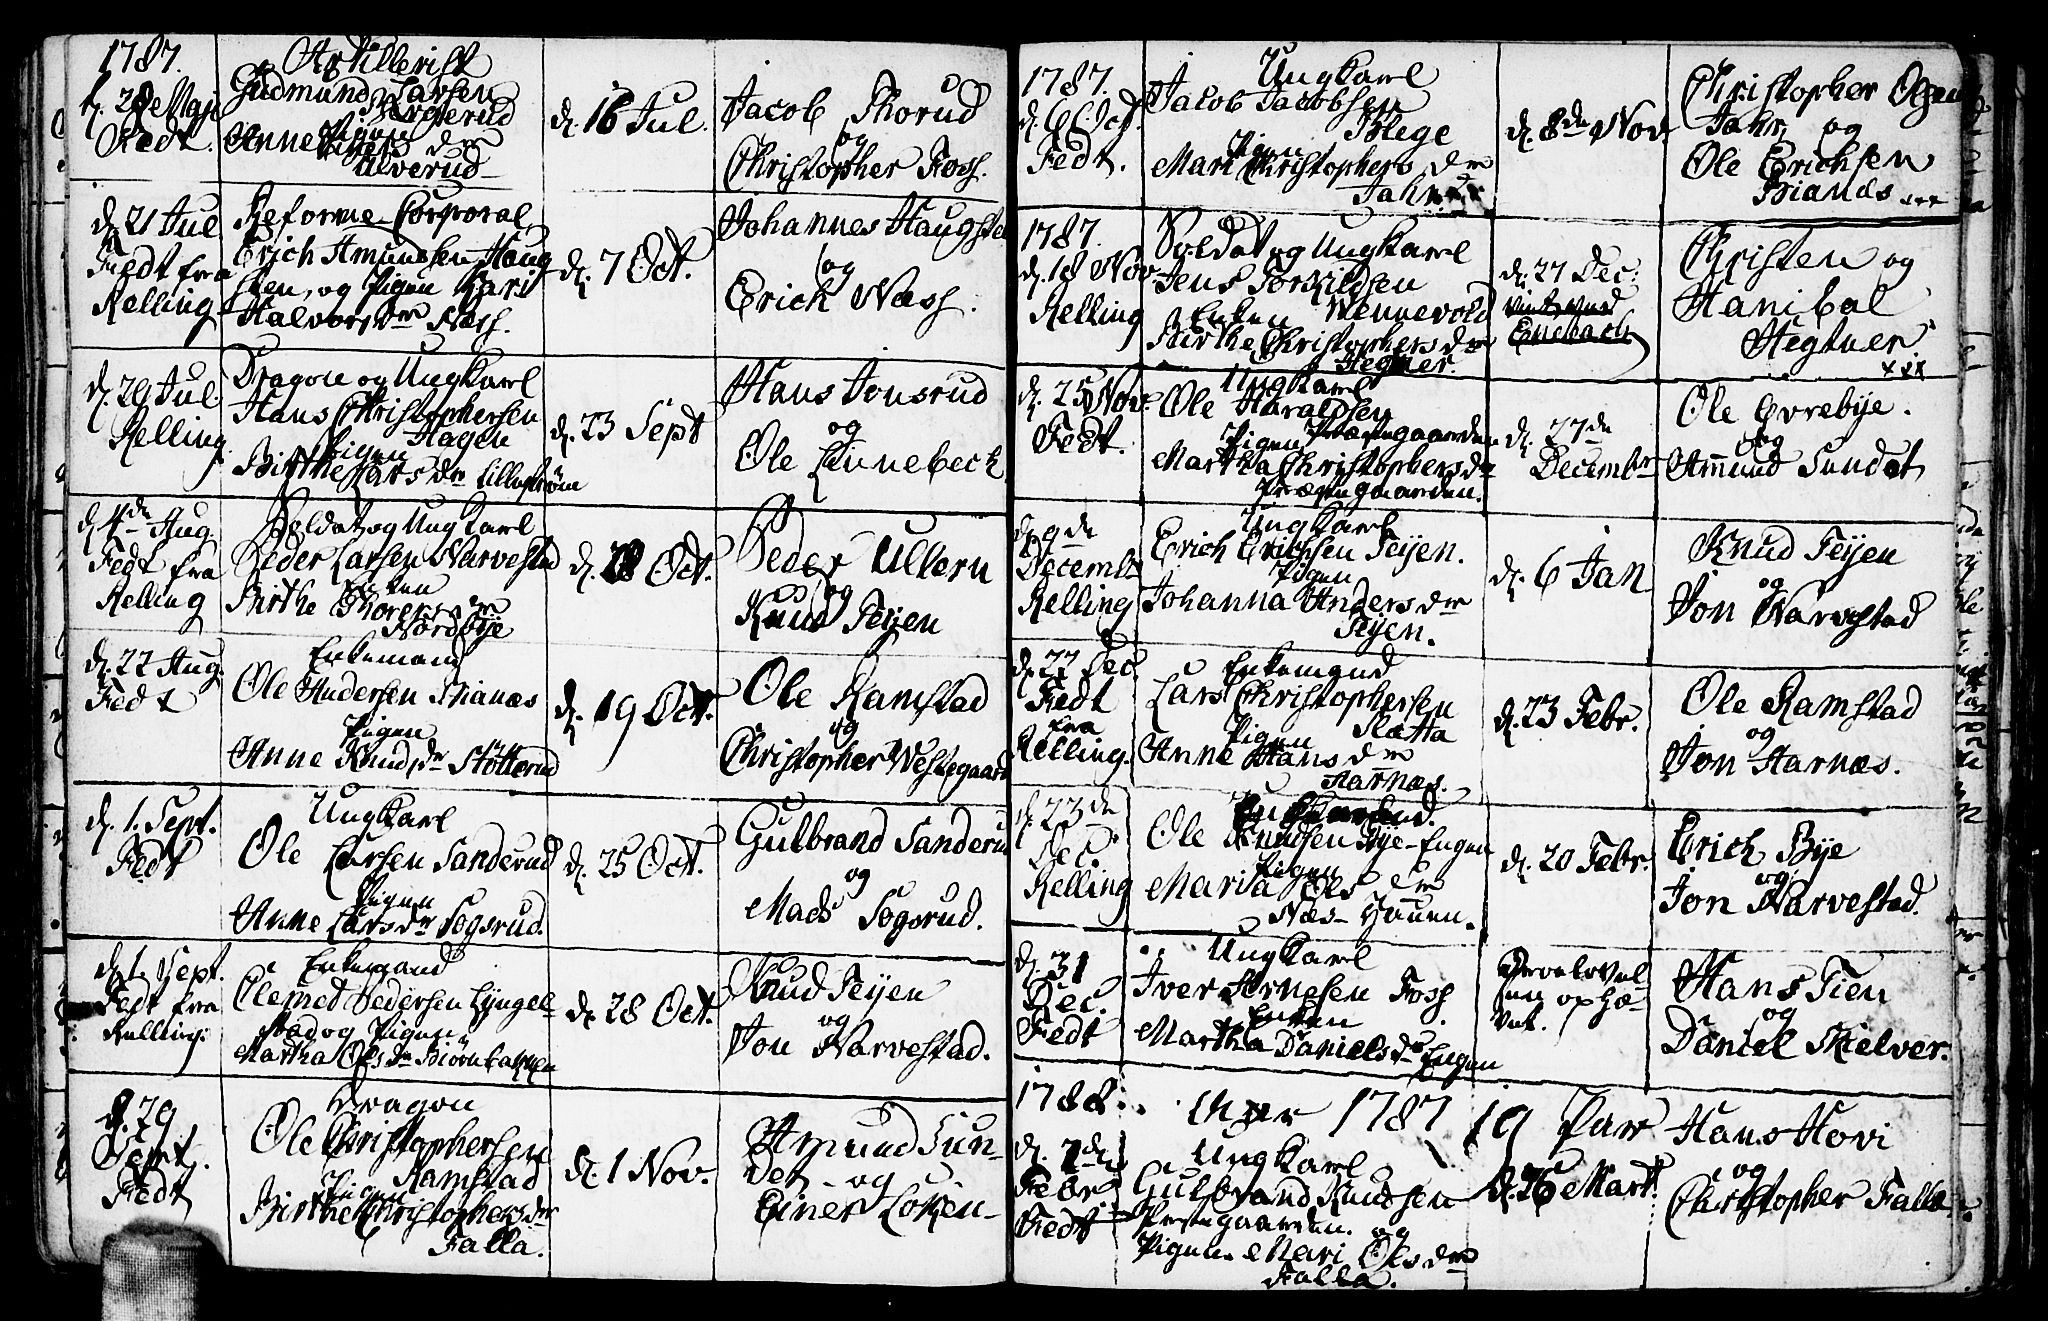 1787.
d. 28 Maji
Fedt.
Artillerist
Gudmund Larsen
Pigen
Anne
dr
Ulverud
d. 16 Jul.
Jacob Thorud
og
Christopher Foss.
d. 21 Jul
Fedt fra
Relling
Reforme-Corporal
Erich Amundsen Haug
sten, og Pigen Kari
Halvorsdr Næss.
d. 7 Oct.
Johannes Haugsten
og
Erich Næss.
d. 29 Jul.
Relling
Dragon og Ungkarl
Hans Christophersen
Hagen
Pigen
Birthe Larsdr Lillestrøm
d. 23 Sept
Hans Jonsrud
og
Ole Linnebeck
d. 4de Aug.
Fedt fra
Relling
Soldat og Ungkarl
Peder Larsen Narvestad
Enken
Birthe Thoresdr
Nordbye
d. 28 Oct.
Peder Ullern
og
Knud Feijen
d. 22 Aug.
Fedt
Enkemand
Ole Andersen Bianæs
Pigen
Anne Knudsdr Støtterud
d. 19 Oct.
Ole Ramstad
og
Christopher Westegaard
d. 1. Sept.
Fedt
Ungkarl
Ole Larsen Sanderud
Pigen
Anne Larsdr Sogsrud.
d. 25 Oct.
Gulbrand Sanderud
og
Mads Sogsrud.
d. 1. Sept.
Fedt fra
Relling.
Enkemand
Clemet Pedersen Lyngel-
stad og Pigen
Martha Olsdr Biørnbakken
d. 28 Oct.
Knud Feijen
og
Jon Narvestad.
d. 29
Sept.
Fedt
Dragon
Ole Christophersen
Ramstad
Pigen
Birthe Christophersdr
Falla.
d. 1 Nov.
Amund Sun-
det og
Einer Løken
1787.
d. 6 Oct.
Fedt.
Ungkarl
Jacob Jacobsen
Hege
Pigen
Mari Christophersdr
Jahr.
d. 8de Nov.
Christopher Olsen
Jahr, og
Ole Erichsen
Bianæs
1787.
d. 18 Nov.
Relling
Soldat og Ungkarl
Jens Torkildsen
Wennevold
Enken
Birthe Christophersdr
Hegner.
d. 27 Dec:
Enebach
Christen og
Hanibal
Hegtner
d. 25 Nov.
Fedt.
Ungkarl
Ole Haraldsen
Pigen Præstegaarden
Martha Christophersdr
Præstegaarden.
d. 27de
Decembr
Ole Evrebye.
og
Amund Sundet
d. 9de
Decembr
Relling
Ungkarl
Erich Erichsen Feijen.
Pigen
Johanna Andersdr
Feijen.
d. 6 Jan
Knud Feijen
og
Jon Narvestad
d. 22 Dec.
Fedt
fra
Relling.
Enkemand
Lars Christophersen
Pigen Slatta
Anne Hansdr
Aarnæs.
d. 23 Febr.
Ole Ramstad
og
Jon Aarnæs.
d. 23de
Dec.
Relling
Ole Knudsen Bye-Engen
Pigen
Maria Olsdr
Næs-Hauen.
d. 20 Febr.
Erich Bye
og
Jon Narvestad.
d. 31
Dec.
Fedt
Ungkarl
Iver Arnesen Foss
Enken
Martha Danielsdr Engen
Troelovel-
sen ophæ-
vet.
Hans Fien
og
Daniel Kielver.
1788.
Anno 1787 19 Par
d. 2de
Febr
Fedt
Ungkarl
Gulbrand Knudsen
Præstegaarden. og
Pigen Mari Olsdr
Falla.
d. 26 Mart.
Hans Hovi
og
Christopher Falla.